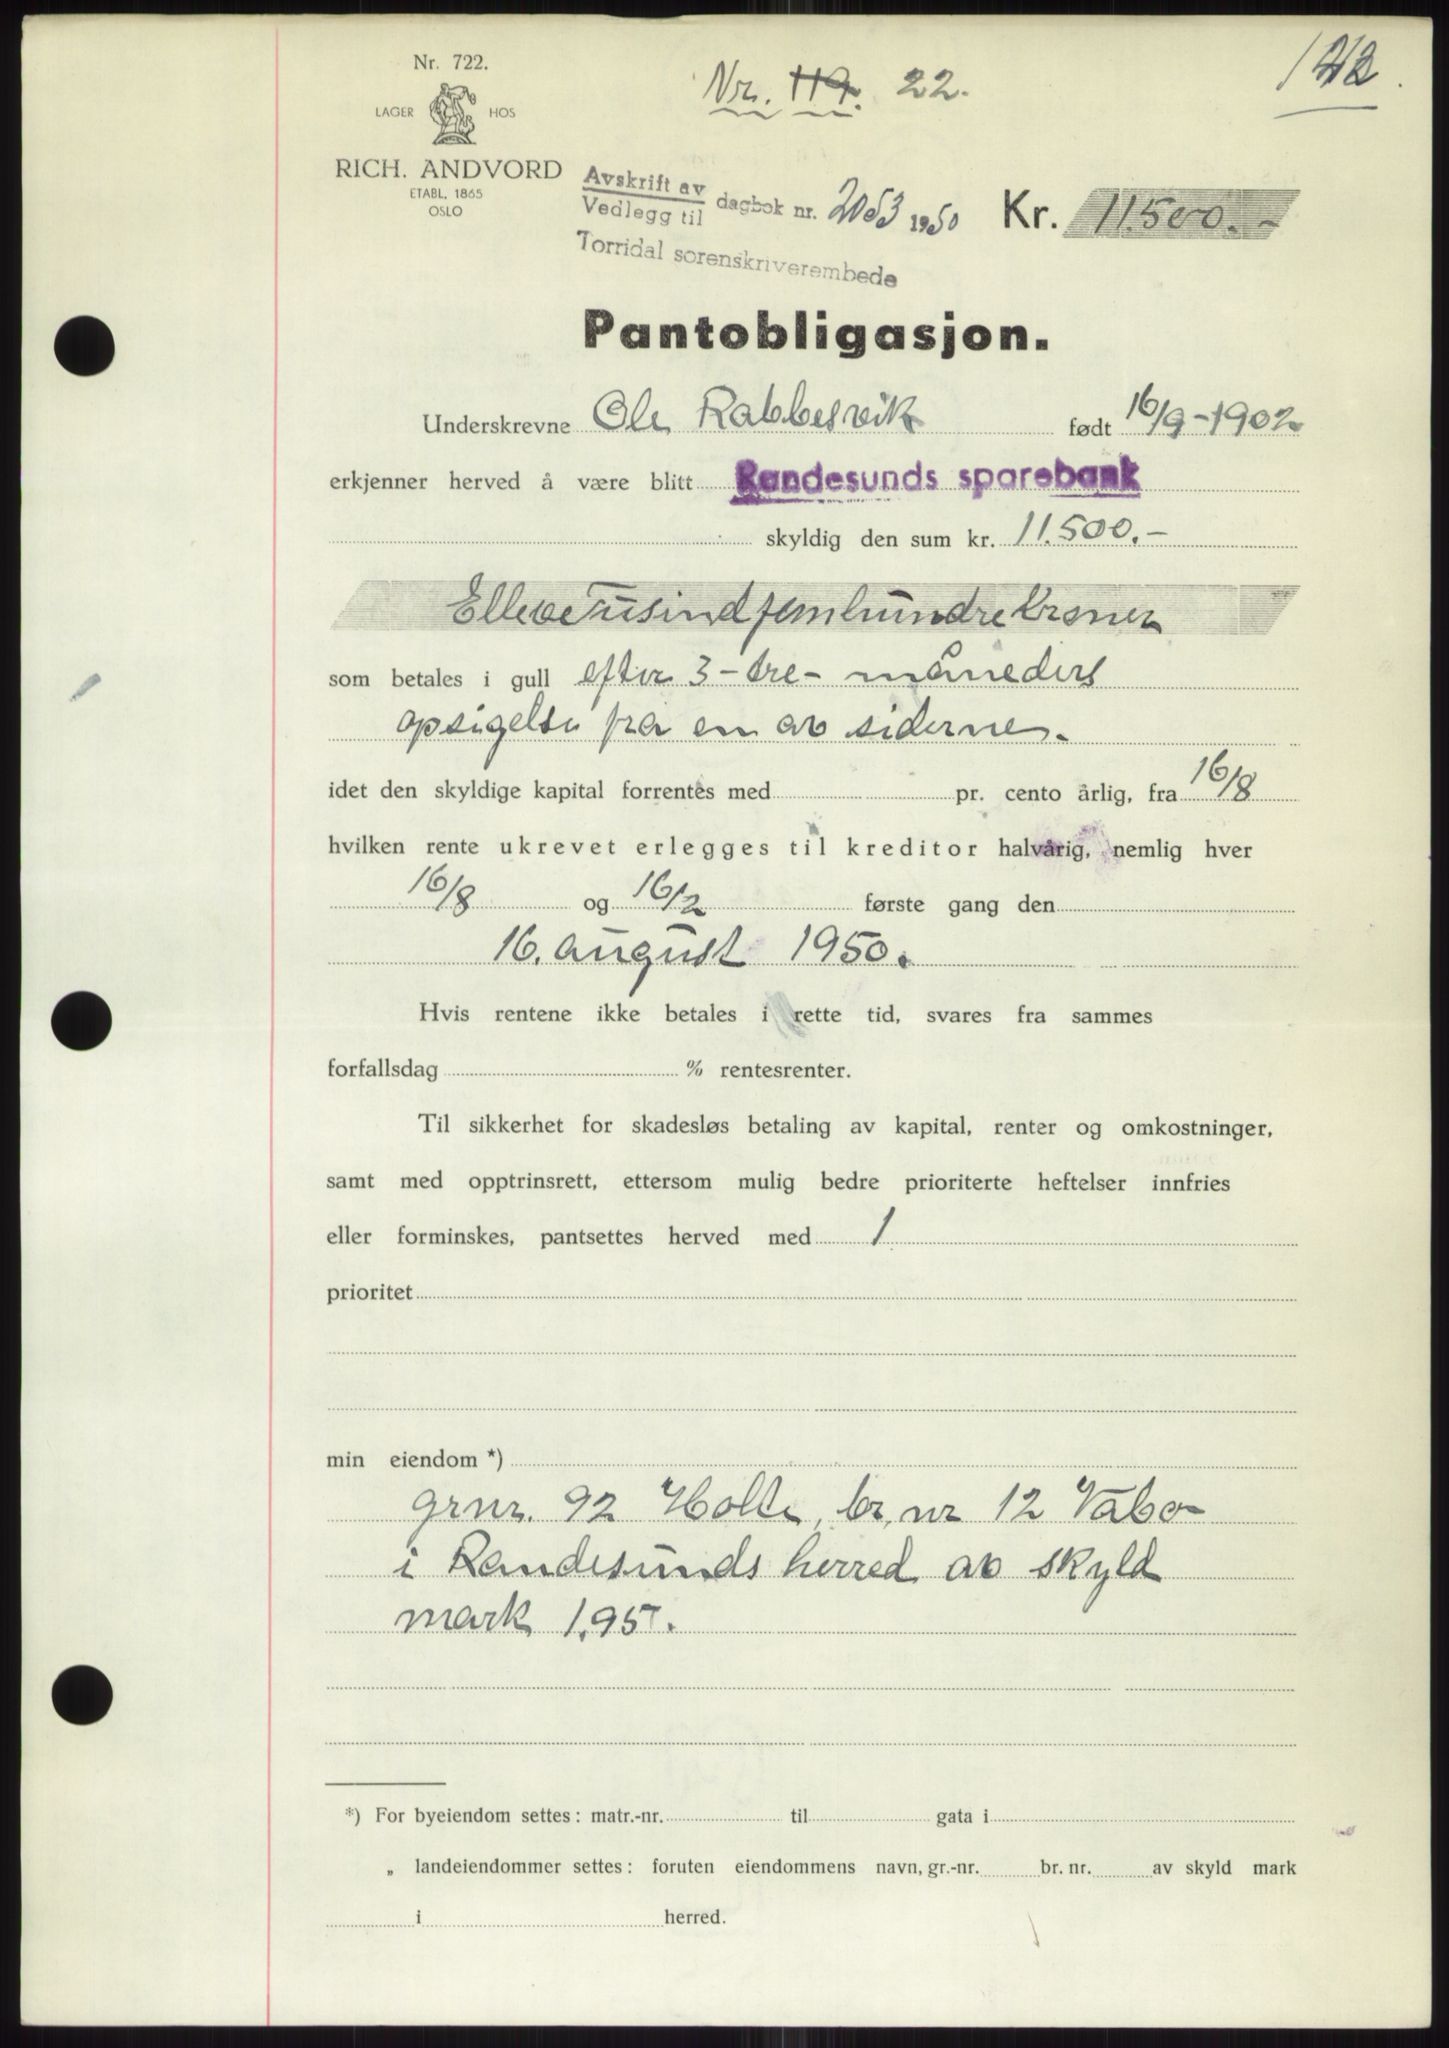 Nr. 722.
LAGER HOS
RICH. ANDVORD
ETABL. 1865
OSLO
Nr. 119. 22.
Avskrift av
Vedlegg til
dagbok nr. 2053 1950
Torridal sorenskriverembede
Kr. 11.500.-
Pantobligasjon.
Underskrevne Ole Rabbesvik født 16/9-1902
erkjenner herved å være blitt Randesunds sparebank
skyldig den sum kr. 11.500.-
Elleve Tusind femhundre Kroner
som betales i gull efter 3-tre- måneders
opsigelse fra en av siderne.
idet den skyldige kapital forrentes med pr. cento årlig, fra 16/8
hvilken rente ukrevet erlegges til kreditor halvårig, nemlig hver
16/8 og 16/2 første gang den
16. august 1950.
Hvis rentene ikke betales i rette tid, svares fra sammes
forfallsdag % rentesrenter.
Til sikkerhet for skadesløs betaling av kapital, renter og omkostninger,
samt med opptrinsrett, ettersom mulig bedre prioriterte heftelser innfries
eller forminskes, pantsettes herved med 1
prioritet
min eiendom *)
grnr. 92 Holte, br, nr 12 Vabo
i Randesunds herred av skyld
mark 1,95.
*) For byeiendom settes: matr.-nr. til gata i
„ landeiendommer settes: foruten eiendommens navn, gr.-nr. br. nr. av skyld mark
i herred.